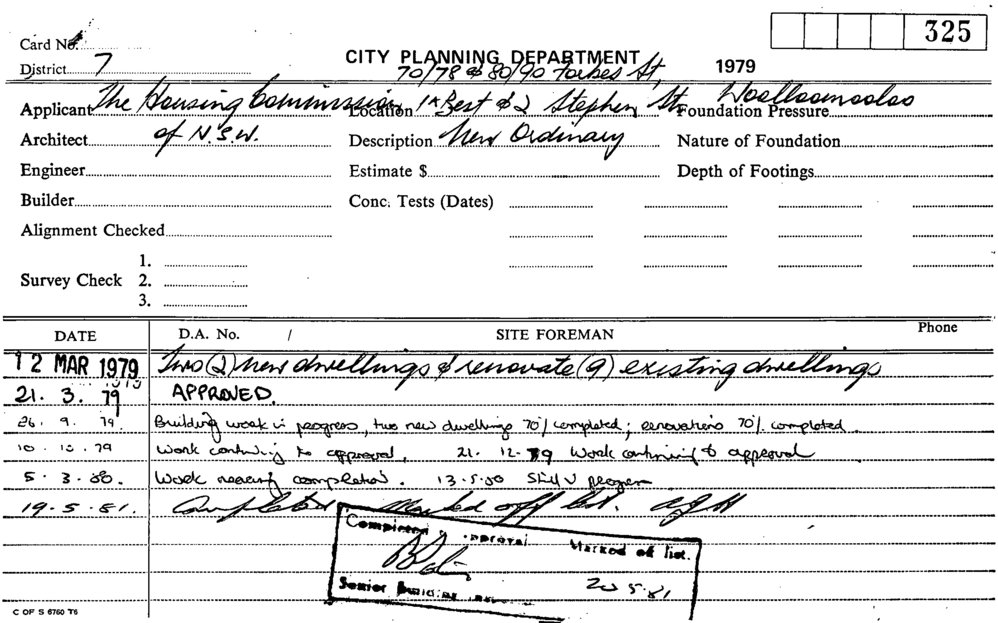 325
Card No.
CITY PLANNING DEPARTMENT
1979
District 7
70/78 & 80/90 Forbes St,
Applicant The Housing Commission
Location St Woolloomooloo
2 Stephen
Foundation Pressure
Architect of N.S.W.
Description New Ordinary
Nature of Foundation
Engineer
Estimate $
Depth of Footings
Builder
Conc. Tests (Dates)
Alignment Checked
1.
Survey Check 2.
3.
DATE D.A. No. / SITE FOREMAN Phone
12 MAR 1979 Two (2) new dwellings & renovate (9) existing dwellings
21. 3. 79 APPROVED.
26. 9. 79. Building work in progress, two new dwellings 70% completed; renovations 70% completed.
10. 10. 79 Work continuing to approval. 21. 12. 79 Work continuing to approval
5. 3. 80. Work nearing completion. 13.5.80 Still in progress
19.5.81. Completed Marked off list.
Completed approval Marked off list.
Senior Building 20 5.81
C OF S 6760 T6